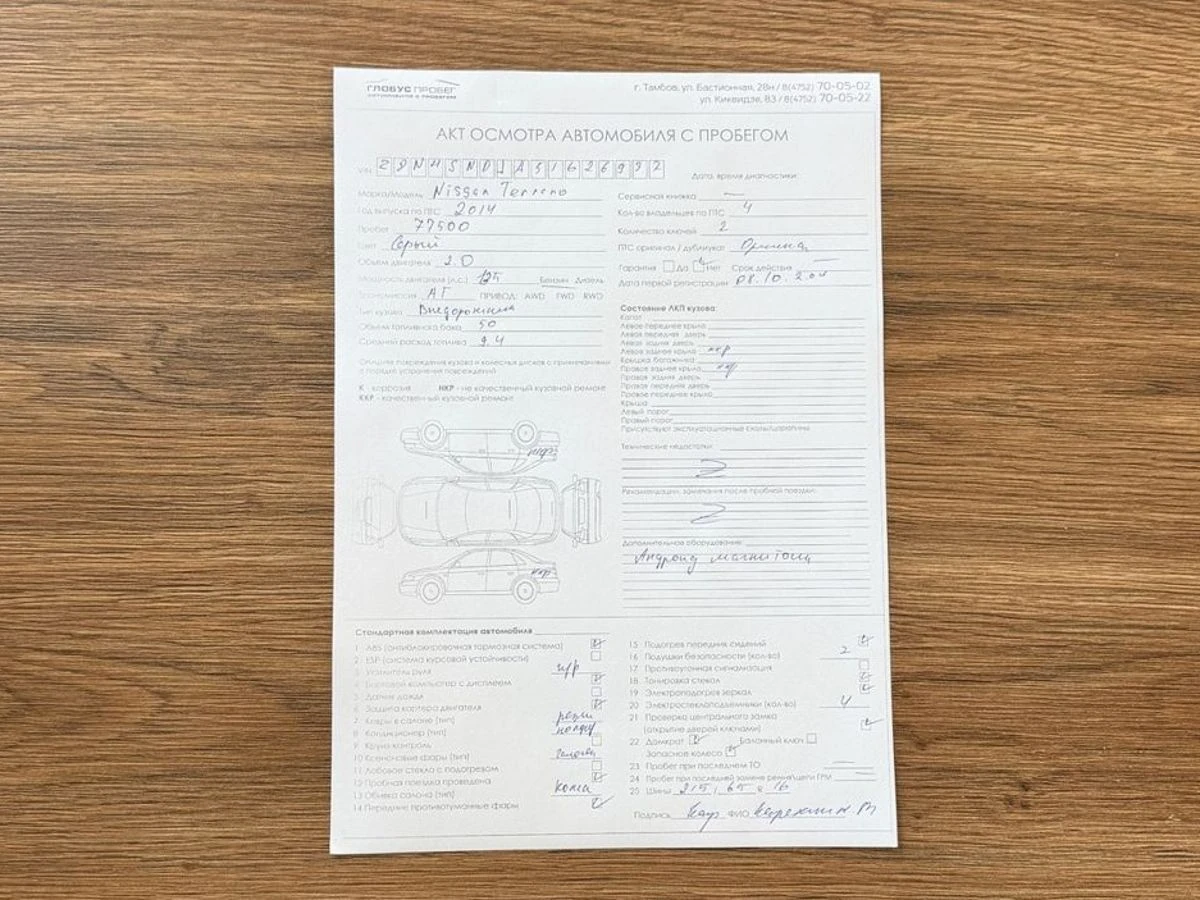 ГЛОБУС ПРОБЕГ
АВТОМОБИЛИ С ПРОБЕГОМ
г. Тамбов, ул. Бастионная, 28н / 8(4752) 70-05-02
ул. Киквидзе, 83 / 8(4752) 70-05-22
АКТ ОСМОТРА АВТОМОБИЛЯ С ПРОБЕГОМ
VIN
Дата, время диагностики:
Марка/Модель Nissan Terrano
Год выпуска по ПТС 2014
Пробег 77500
Цвет Серый
Объем двигателя 2.0
Мощность двигателя (л.с.) Бензин Дизель
Трансмиссия ПРИВОД: AWD FWD RWD
Тип кузова
Объем топливного бака 50
Средний расход топлива 9.4
Опишите повреждения кузова и колесных дисков с примечаниями
о порядке устранения повреждений
К - коррозия НКР - не качественный кузовной ремонт
ККР - качественный кузовной ремонт
Сервисная книжка —
Кол-во владельцев по ПТС 4
Количество ключей 2
ПТС оригинал / дубликат
Гарантия Да Нет Срок действия —
Дата первой регистрации 08.10.
Состояние ЛКП кузова:
Капот
Левое переднее крыло
Левая передняя дверь
Левая задняя дверь
Левое заднее крыло нкр
Крышка багажника
Правое заднее крыло нкр
Правая задняя дверь
Правая передняя дверь
Правое переднее крыло
Крыша
Левый порог
Правый порог
Присутствуют эксплуатационные сколы/царапины
Технические недостатки:
Рекомендации, замечания после пробной поездки:
Дополнительное оборудование:
Андроид магнитола
нкр
нкр
Стандартная комплектация автомобиля
1 ABS (антиблокировочная тормозная система)
2 ESP (система курсовой устойчивости)
3 Усилитель руля гур
4 Бортовой компьютер с дисплеем
5 Датчик дождя
6 Защита картера двигателя
7 Ковры в салоне (тип)
8 Кондиционер (тип)
9 Круиз-контроль
10 Ксеноновые фары (тип)
11 Лобовое стекло с подогревом
12 Пробная поездка проведена
13 Обивка салона (тип) кожа
14 Передние противотуманные фары
15 Подогрев передних сидений
16 Подушки безопасности (кол-во) 2
17 Противоугонная сигнализация
18 Тонировка стекол
19 Электроподогрев зеркал
20 Электростеклоподъемники (кол-во) 4
21 Проверка центрального замка
(открытие дверей ключами)
22 Домкрат Балонный ключ
Запасное колесо
23 Пробег при последнем ТО —
24 Пробег при последней замене ремня/цепи ГРМ —
25 Шины 215, 65 16
Подпись ФИО